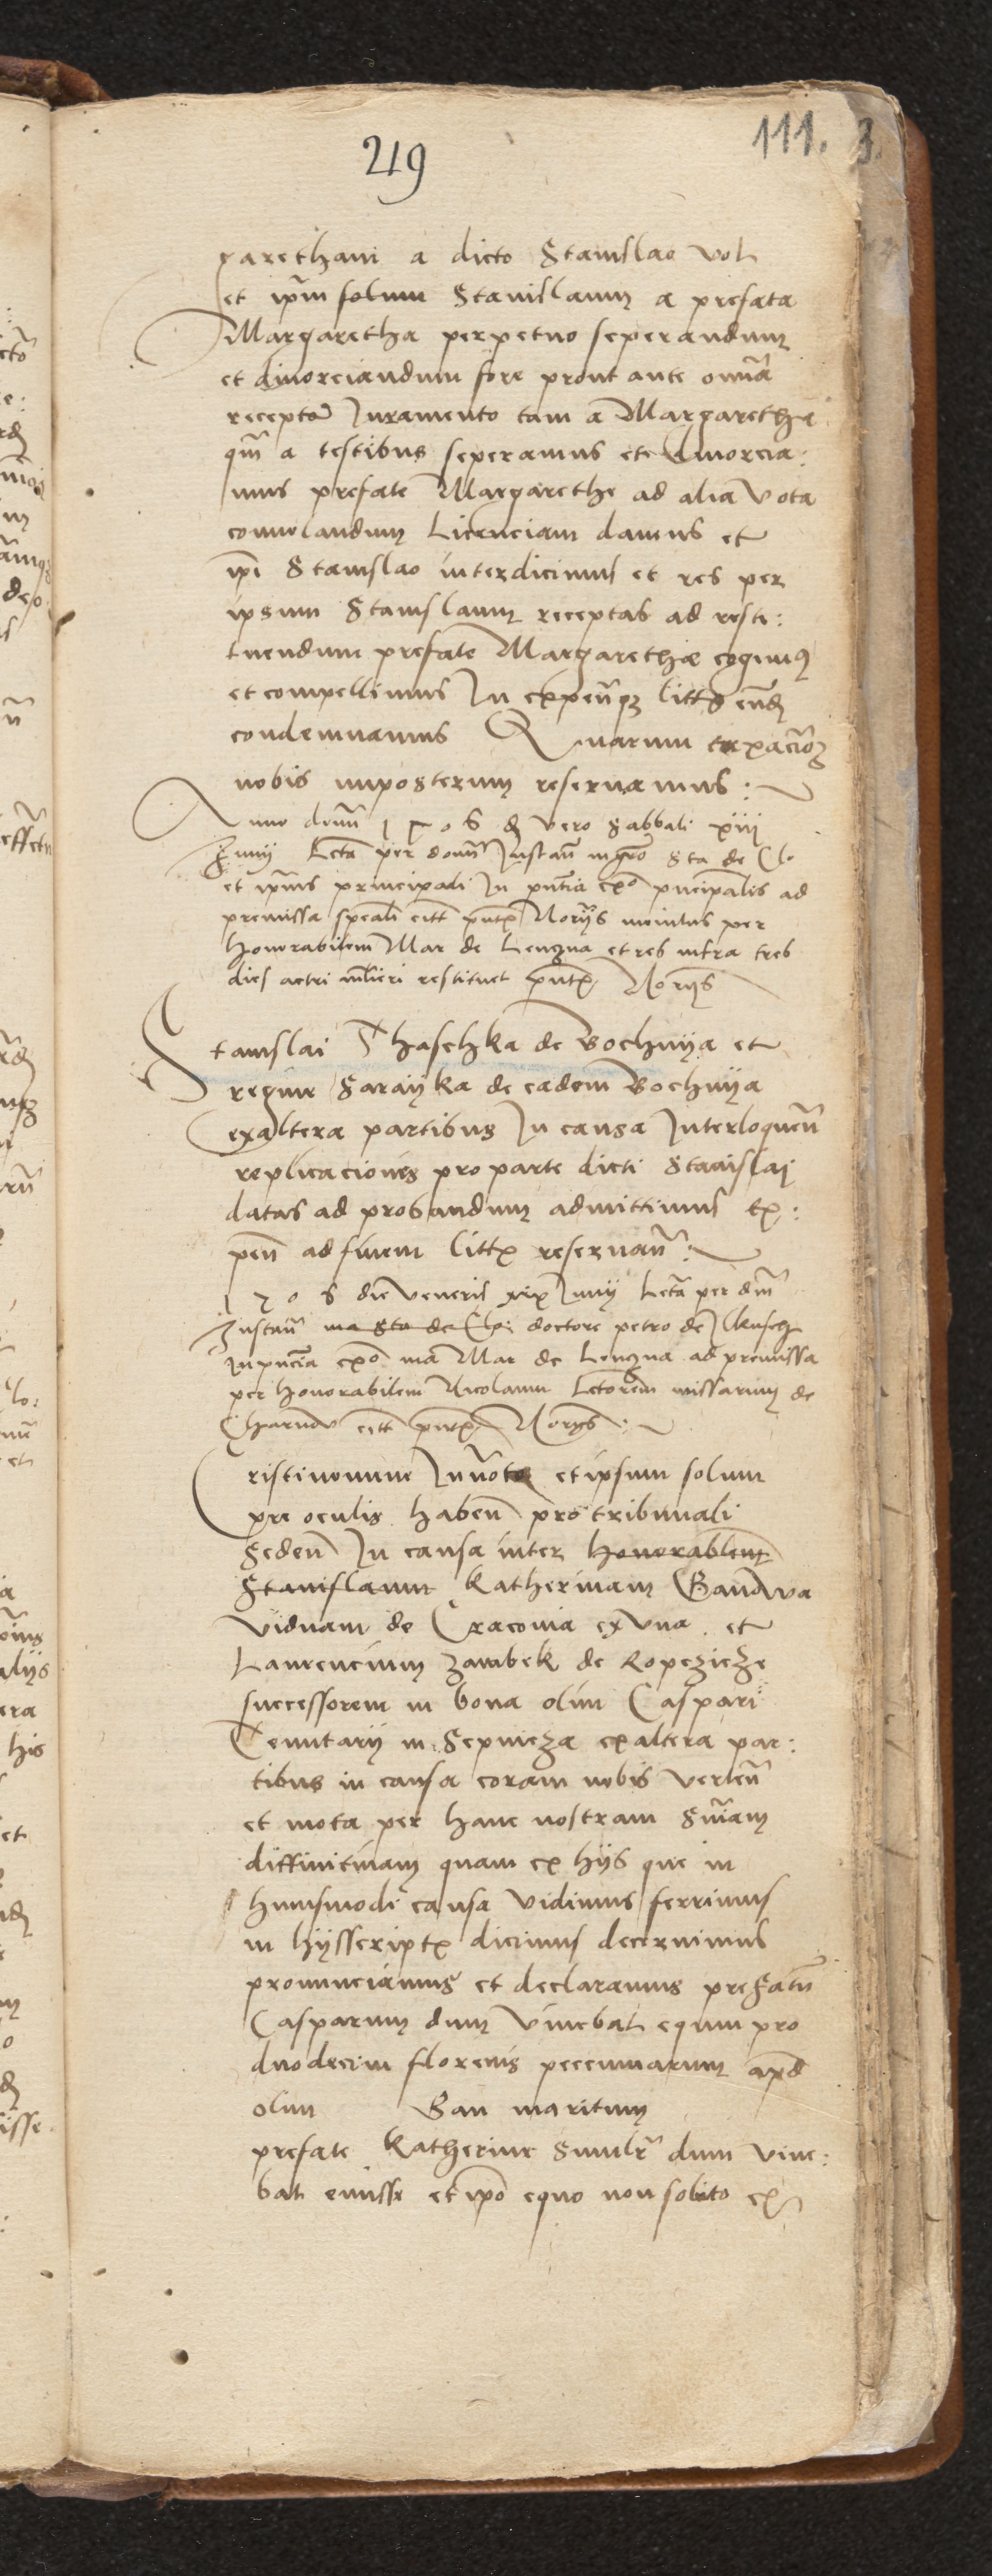 219
111. 3.
garetham a dicto Stanislao vol
et ipm̄ solum Stanislaum a prefata
Margaretha perpetuo seperandum
et divorciandum fore prout ante omnā
recepto Juramento tam a Margaretha
qm̄ a testibus seperamus et divorcia:
mus prefate Margarethe ad alia vota
convolandum Licenciam damus et
ipi Stanislao interdicimus et res per
ipsum Stanislaum receptas ad resti:
tuendum prefate Margarethe cogimus
et compellimus In expen̄ litt eund
condemnamus Quarum taxacio
nobis imposterum reservamus :
Anno domi 1506 d vero Sabbati xiii
Junij Lecta per dom̄ Justan̄ mgro Sta de Clo
et ipius principali In pntia exo pncipalis ad
premissa speali citt pntx Norijs monitus per
honorabilem Mar de Lenzna et res infra tres
dies actri mlieri restituet pntx Norijs
Stanislai Thaschka de Bochnya et
regine Sarayka de eadem Bochnya
exaltera partibus In causa Interloquen̄
replicaciones pro parte dicti Stanislai
datas ad probandum admittimus Ex:
pen̄ ad finem littx reservan̄ :
1506 die Veneris xix Junij Lecta per dm̄
Instan̄ ma Sta de Clo: doctore petro de Ilkusch
In pncia exo ma Mar de Lenzna ad premissa
per honorabilem Nicolaum Lectorem missarum de
citt pntx Norijs :
Cristi nomine Invoto et ipsum solum
pre oculis haben̄ pro tribunali
Seden̄ In causa inter honorabilem
Stanislaum Katherinam Banowa
viduam de Cracovia ex una et
Laurencium Zambek de Ropczicze
successorem in bona olim Caspari
Tenutarij in Sepnicza exaltera par:
tibus in causa coram nobis verten̄
et mota per hanc nostram Snīam
diffinitivam quam ex hijs que in
huiusmodi causa vidimus ferrimus
in hijs scriptx dicimus decernimus
pronunciamus et declaramus prefatū
Casparum dum vivebat equum pro
duodecim florenis peccuniarum apd
olim Ban maritum
prefate Katherine Similr̄ dum vive:
bat emisse et ipo equo non soluto ex